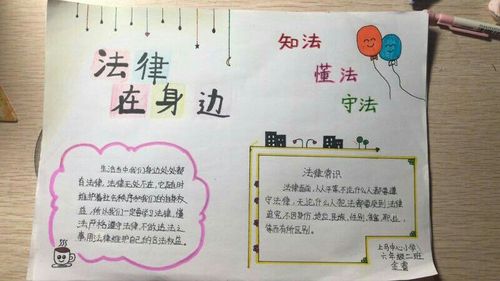 法律
在身边
知法
懂法
守法
生活当中我们身边处处都
有法律,法律无处不在,它随时
维护着社会秩序和我们的自身权
益,所以我们一定要学习法律,懂
法严格遵守法律,不做违法之
事用法律维护自己的合法权益。
法律常识
法律面前,人人平等,不论什么人都要遵
守法律,无论什么人犯法都要受到法律
追究,不因身份,地位,民族,性别,信仰,职业,
等而有所区别。
上马中心小学
六年级二班